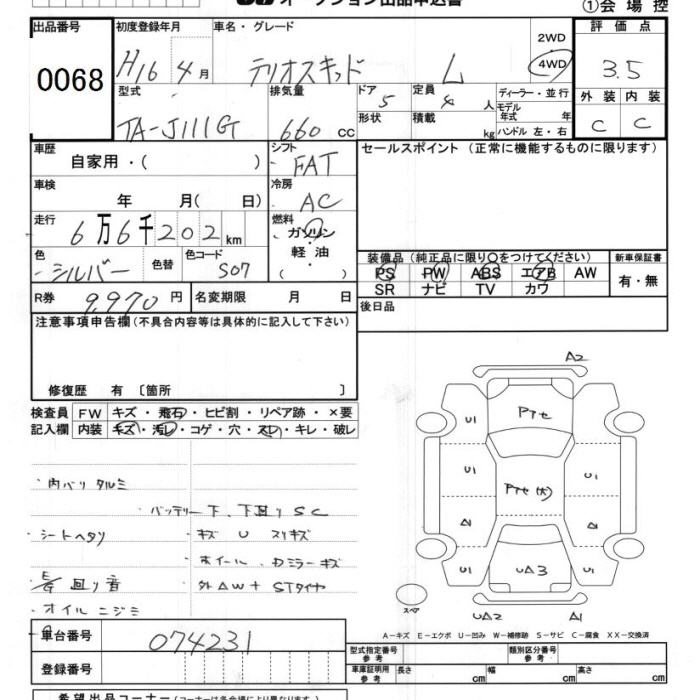 オークション出品申込書
①会場控
出品番号 0068
初度登録年月 H16年4月
車名・グレード テリオスキッド L
2WD 4WD
評価点 3.5
型式 TA-J111G
排気量 660cc
ドア 5
形状
定員 4人
積載 kg
ディーラー・並行
モデル年式 年
ハンドル 左・右
外装 C
内装 C
車歴 自家用・( )
シフト FAT
セールスポイント (正常に機能するものに限ります)
車検 年 月( 日)
冷房 AC
走行 6万6千202km
燃料 ガソリン・軽油・( )
色 シルバー
色替
色コード S07
装備品 (純正品に限り○をつけてください)
PS PW ABS エアB AW
SR ナビ TV カワ
新車保証書 有・無
R券 9,970円
名変期限 月 日
後日品
注意事項申告欄(不具合内容等は具体的に記入して下さい)
修復歴 有 〔箇所 〕
検査員記入欄
FW キズ・飛石・ヒビ割・リペア跡・×要
内装 キズ・汚レ・コゲ・穴・スレ・キレ・破レ
・内バリ タルミ
・バッテリー下、下廻り SC
・シートヘタリ
・キズ U スリキズ
・ホイール、Dミラーキズ
廻り音
・外ΔW+STタイヤ
・オイルニジミ
A2
Ptセ
U1
U1
U1
U1
A1
A1
U1
U1
UA3
スペア
UA2
A1
A-キズ E-エクボ U-凹み W-補修跡 S-サビ C-腐食 XX-交換済
車台番号 074231
登録番号
型式指定番号 参考
類別区分番号 参考
車庫証明用 参考
長さ cm
幅 cm
高さ cm
希望出品コーナー